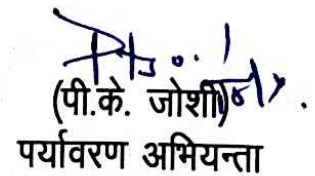 (पी.के. जोशी)
पर्यावरण अभियन्ता